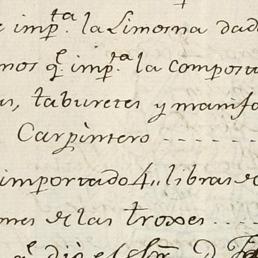 e imp.ta la Limosna dad
mos q.e imp.ta la compost
as, taburetes y manifa
Carpintero
importado 4,, libras de
ones de las troxes
q.e dió el S.or D.